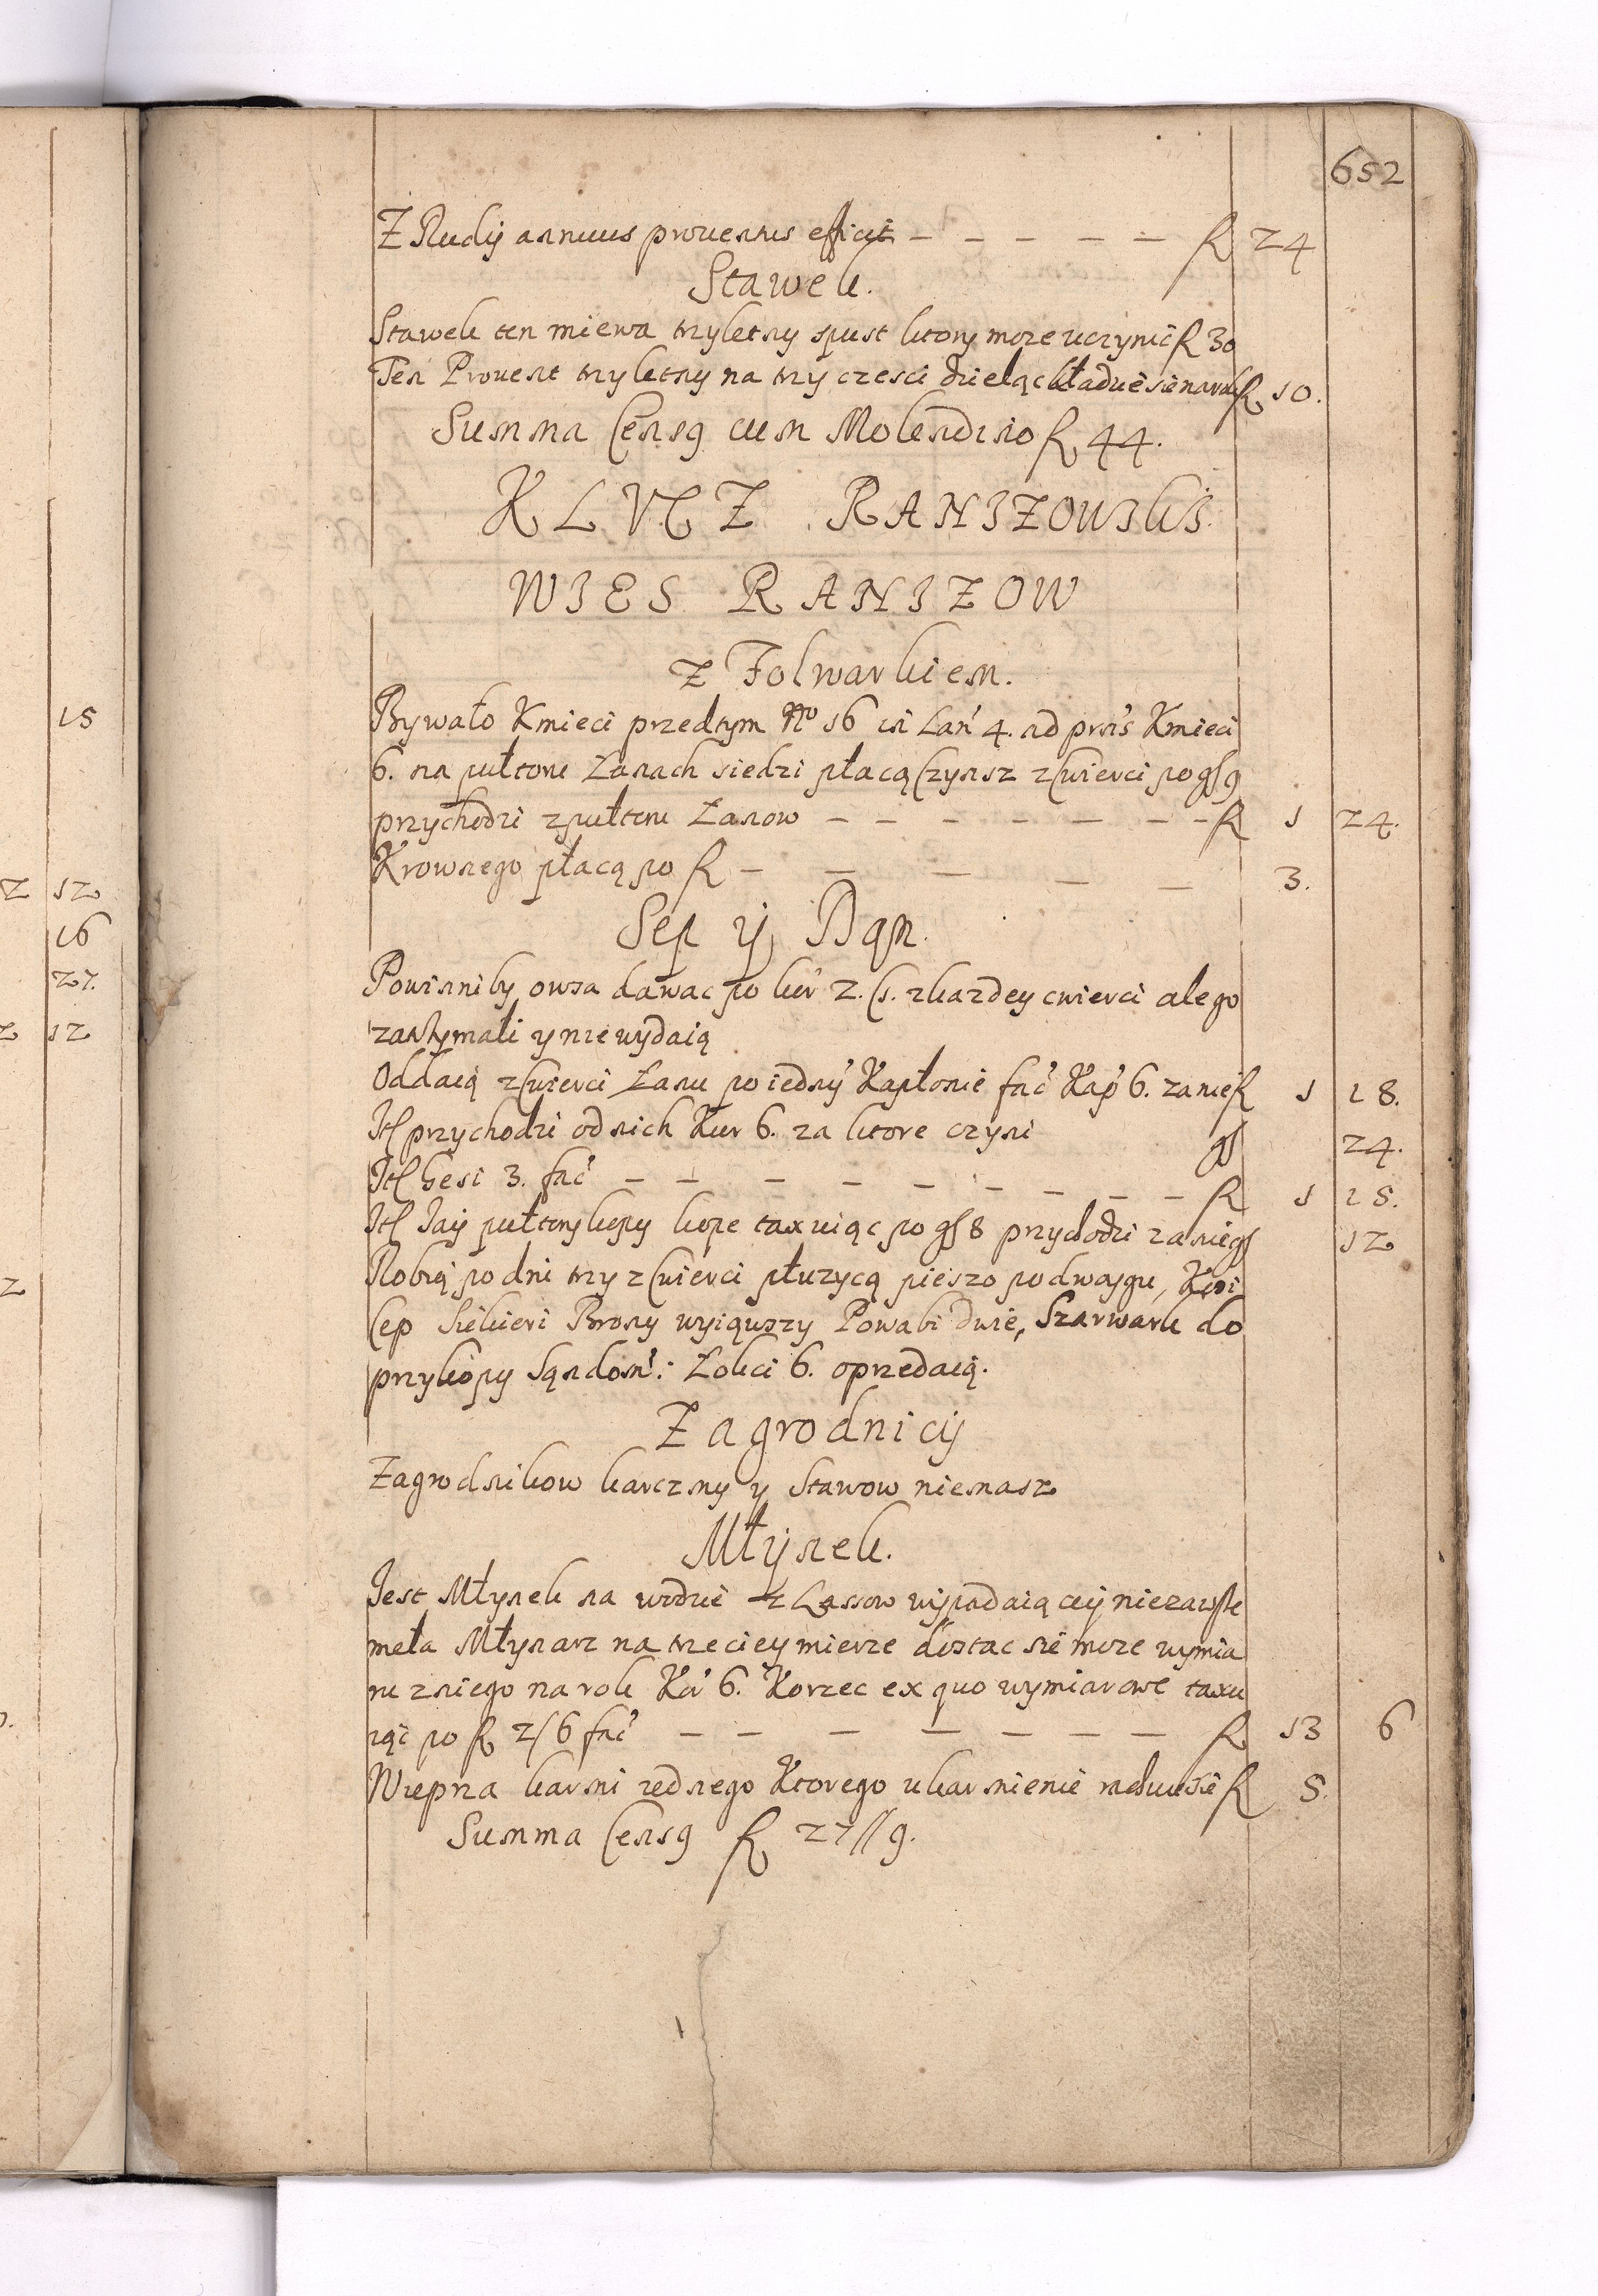 15
Z 12
16
27.
Z 12
Z
652
Z Rudÿ annuus prouentus efficit — — — — — fl 24
Stawek.
Stawek ten miewa trzyletny spust ktory moze uczynic fl 30
Ten Prouent trzyletny na trzy czesci dzieląc kładzie sie na rok fl 10.
Summa Censq cum Molendino fl 44.
KLVCZ RANIZOWSKIS.
WIES RANIZOW
z Folwarkiem.
Bywało Kmieci przedtym No 16 in Lan 4. ad prns Kmieci
6. na pułtoru Łanach siedzi płacą Czynsz z Cwierci po gs 9
przychodzi z pułtoru Łanow — — — — — — — fl 1 24.
Krownego płacą po fl — — — — — 3.
Sep ÿ Dan.
Powinniby owsa dawac po kor 2. cs. z kazdey cwierci ale go
zatrzymali y nie wydaią
Oddaią z Cwierci Łanu po iedny Kapłonie fac Kap 6. za nie fl 1 18.
Itl przychodzi od nich Kur 6. za ktore czyni gs 24.
Itl Gesi 3. fac — — — — — — — — — fl 1 15.
Itl Jaÿ pułtory kopy kope taxuiąc po gs 8 przychodzi za nie gs 12
Robią po dni trzy z Cwierci płuzycą pieszo po dwoygu,
Cep Siekieri Brony wyiąwszy Powabi dwie, Szarwark do
przykopy Sąndom: Łokci 6. oprzedaią.
Zagrodnicÿ
Zagrodnikow karczmy y Stawow niemasz
Młÿnek.
Jest Młynek na wodzie z Lassow wypadaiąceÿ niezawsze
mela Młynarz na trzeciey mierze dostac sie moze wymia
ru z niego na rok Kor 6. Korzec ex quo wymiarowe taxu
iąc po fl 2/6 fac — — — — — — — fl 13 6
Wieprza karmi iednego Ktorego ukarmienie fl 5.
Summa Censq fl 27//9.